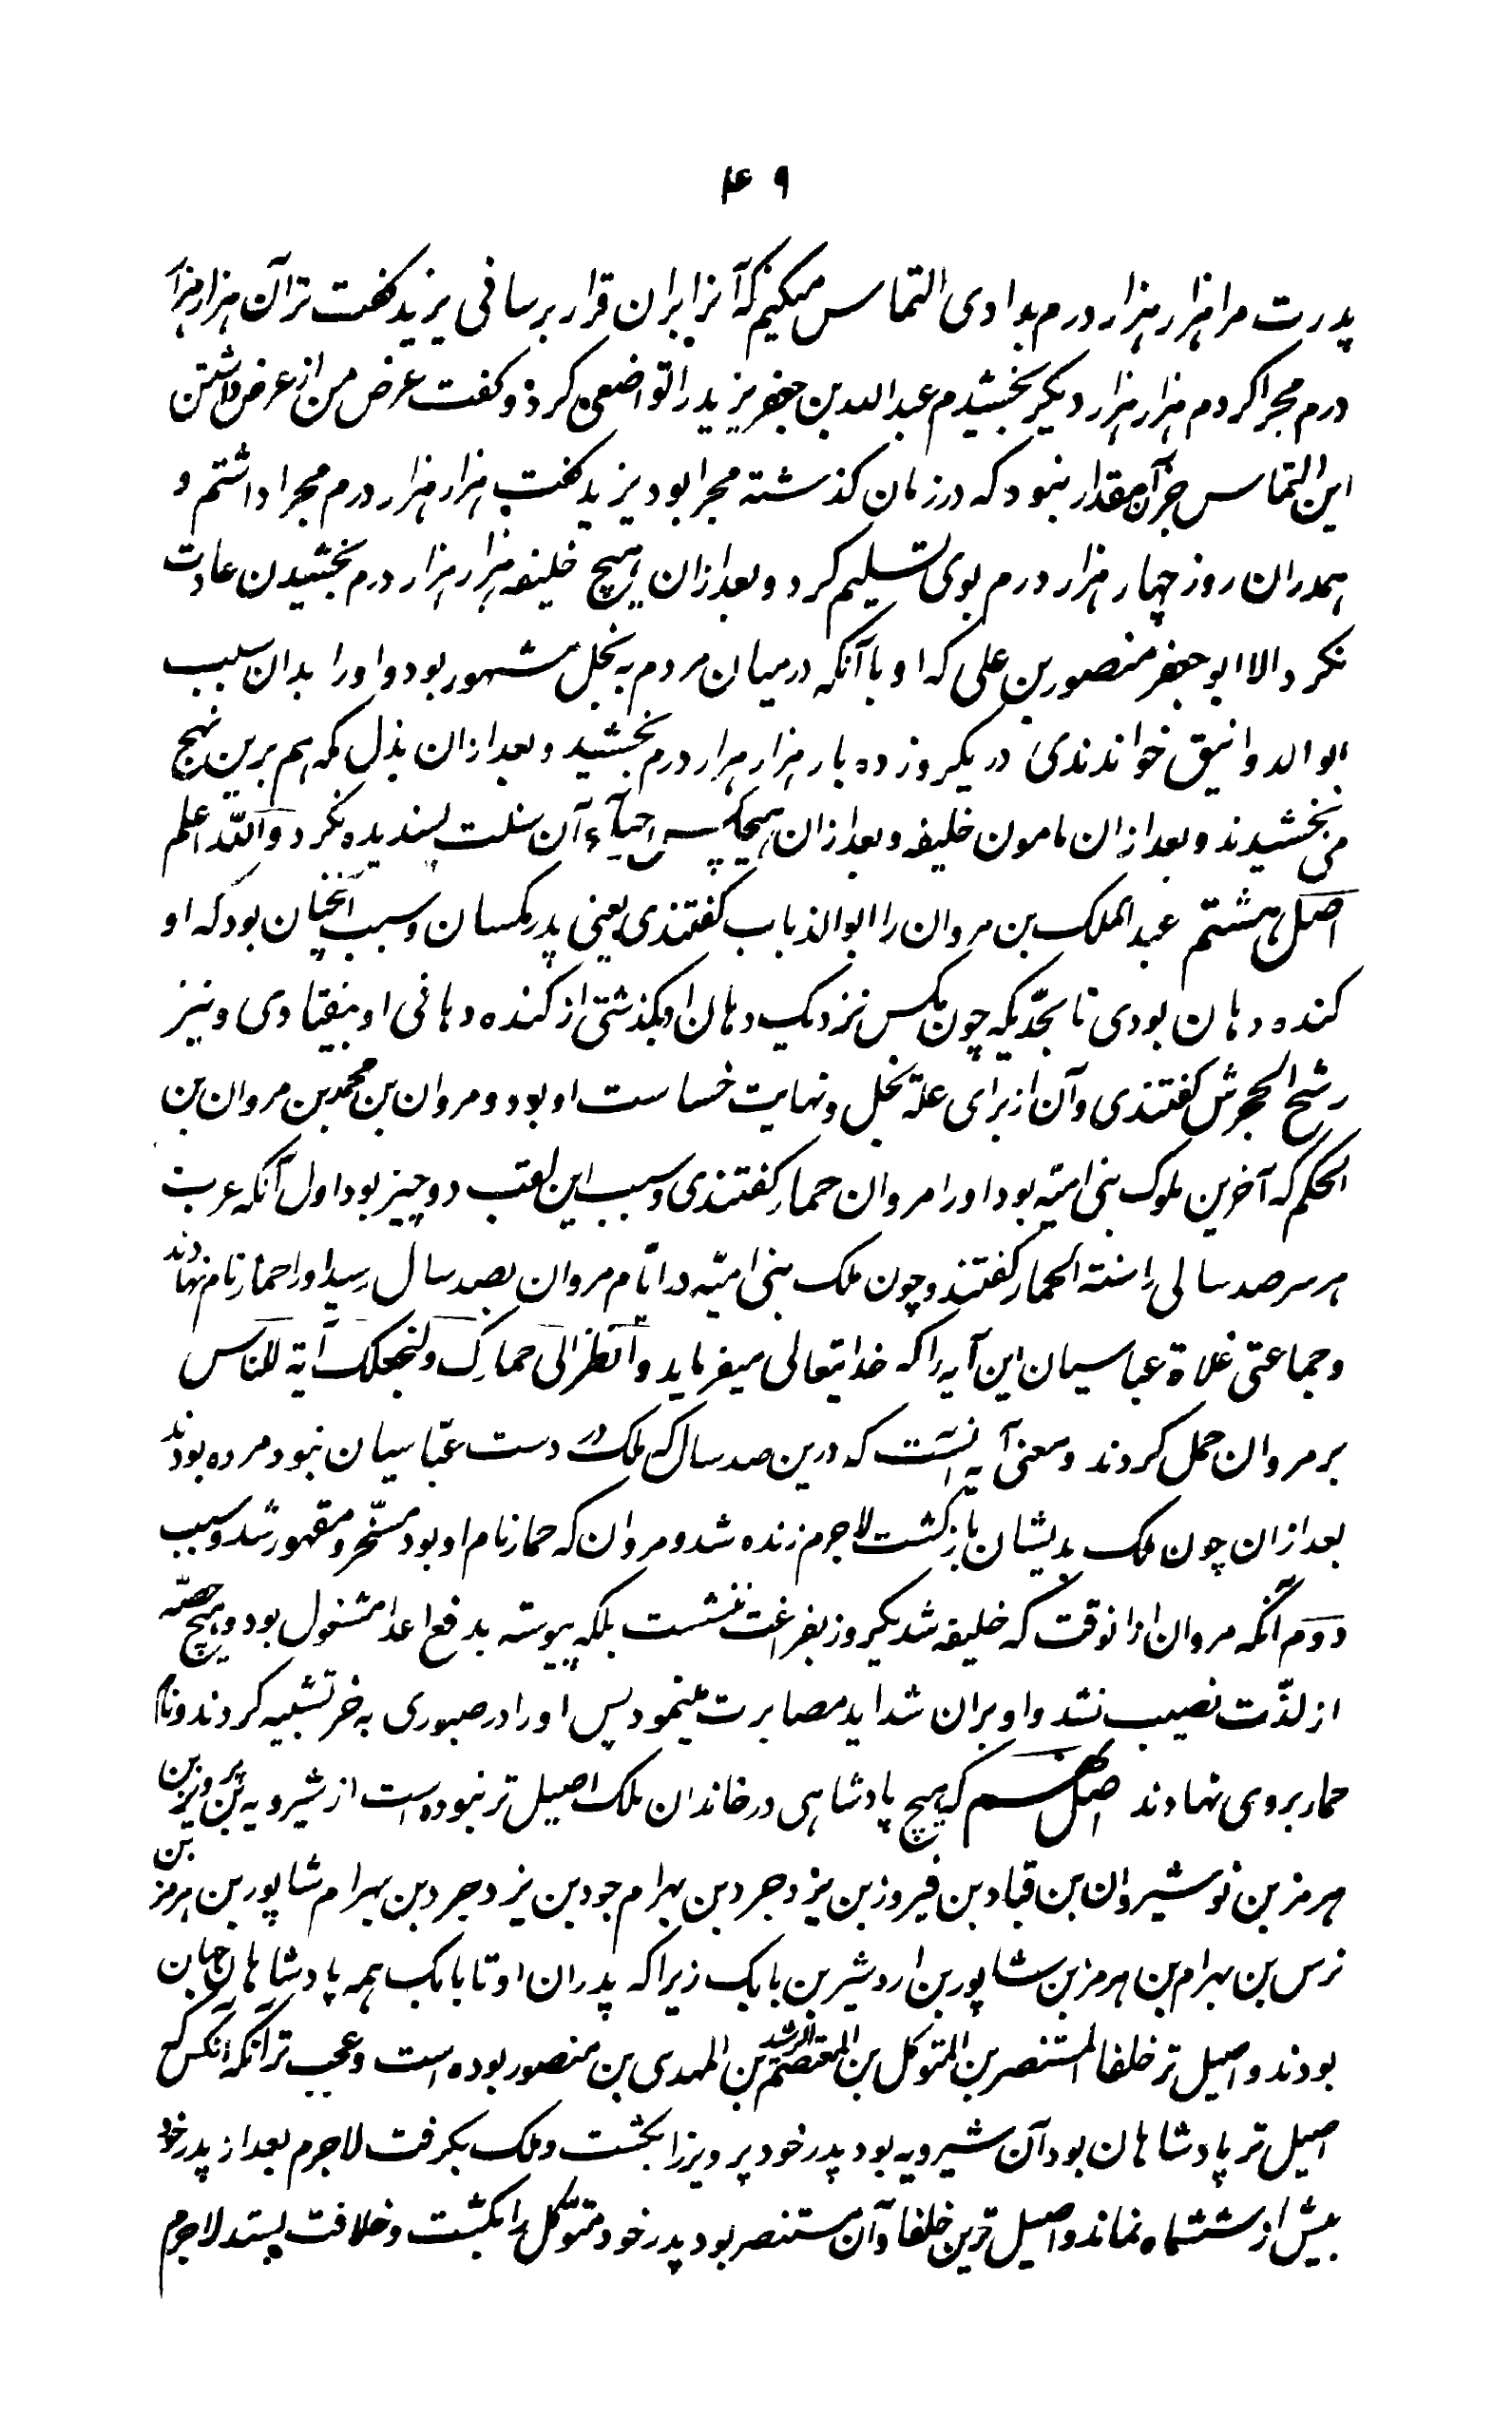 ۴۹
پدرت مرا هزار هزار درم بدادی التماس میکنم که آنرا بران قرار برسانی یزید کفت ترا آن هزار هزار
درم مجرا کردم هزار هزار دیکر بخشیدم عبدالله بن جعفر یزید را تواضعی کرد و کفت غرض من از عرض داشتن
این التماس جز آن مقدار نبود که در زمان کذشته مجرا بود یزید کفت هزار هزار درم مجرا داشتم و
همدران روز چهار هزار درم بوی تسلیم کرد و بعد ازان هیچ خلیفه هزار هزار درم بخشیدن عادت
نکرد الا ابو جعفر منصور بن علی که او با آنکه درمیان مردم به بخل مشهور بود و او را بدان سبب
ابو الدوانیق خواندندی در یکروز ده بار هزار هزار درم بخشید و بعد ازان بذل که هم برین نهج
می بخشیدند و بعد ازان مامون خلیفه و بعد ازان هیچکس احیآء آن سنت پسندیده نکرد واللّه اعلم
اصل هشتم عبدالملک بن مروان را ابوالذباب کفتندی یعنی پدر مکسان و سبب آنچنان بود که او
کنده دهان بودی تا بحدّیکه چون مکس نزدیک دهان او بکذشتی از کنده دهانی او بیفتادی و نیز
رشح الحجرش کفتندی و آن از برای علّه بخل و نهایت خساست او بود و مروان بن محمد بن مروان بن
الحکم که آخرین ملوک بنی امیّه بود او را مروان حمار کفتندی و سبب این لقب دو چیز بود اول آنکه عرب
هر سر صد سالی را سنة الحمار کفتند و چون ملک بنی امیّه در ایّام مروان بصد سال رسید او را حمار نام نهادند
و جماعتی غلاة عباسیان این آیه را که خدایتعالی میفرماید وانظر الی حمارک ولنجعلک آیة للناس
بر مروان حمل کردند و معنی آیه انست که درین صد سال که ملک در دست عبّاسیان نبود مرده بودند
بعد ازان چون ملک بدیشان بازکشت لاجرم زنده شد و مروان که حمار نام او بود مسخّر و مقهور شد و سبب
دوم آنکه مروان ازانوقت که خلیفه شد یکروز بفراغت ننشست بلکه پیوسته بدفع اعدا مشغول بود و هیچ حصّه
از لذّت نصیب نشد و او بران شداید مصابرت مینمود پس او را در صبوری به خر تشبیه کردند و نام
حمار بروی نهادند اصل نهم که هیچ پادشاهی در خاندان ملک اصیل تر نبوده است از شیرویه بن پرویز بن
هرمز بن نوشیروان بن قباد بن فیروز بن یزدجرد بن بهرام جود بن یزدجرد بن بهرام شاپور بن هرمز بن
نرس بن بهرام بن هرمز بن شاپور بن اردشیر بن بابک زیرا که پدران او تا بابک همه پادشاهان جهان
بودند و اصیل تر خلفا المستنصر بن المتوکل بن المعتصم بن الرشید بن المهدی بن منصور بوده است و عجب تر آنکه آنکس که
اصیل تر پادشاهان بود آن شیرویه بود پدر خود پرویز را بکشت و ملک بکرفت لاجرم بعد از پدر خود
بیش از ششماه نماند و اصیل ترین خلفا و آن مستنصر بود پدر خود متوکّل را بکشت و خلافت بستد لاجرم